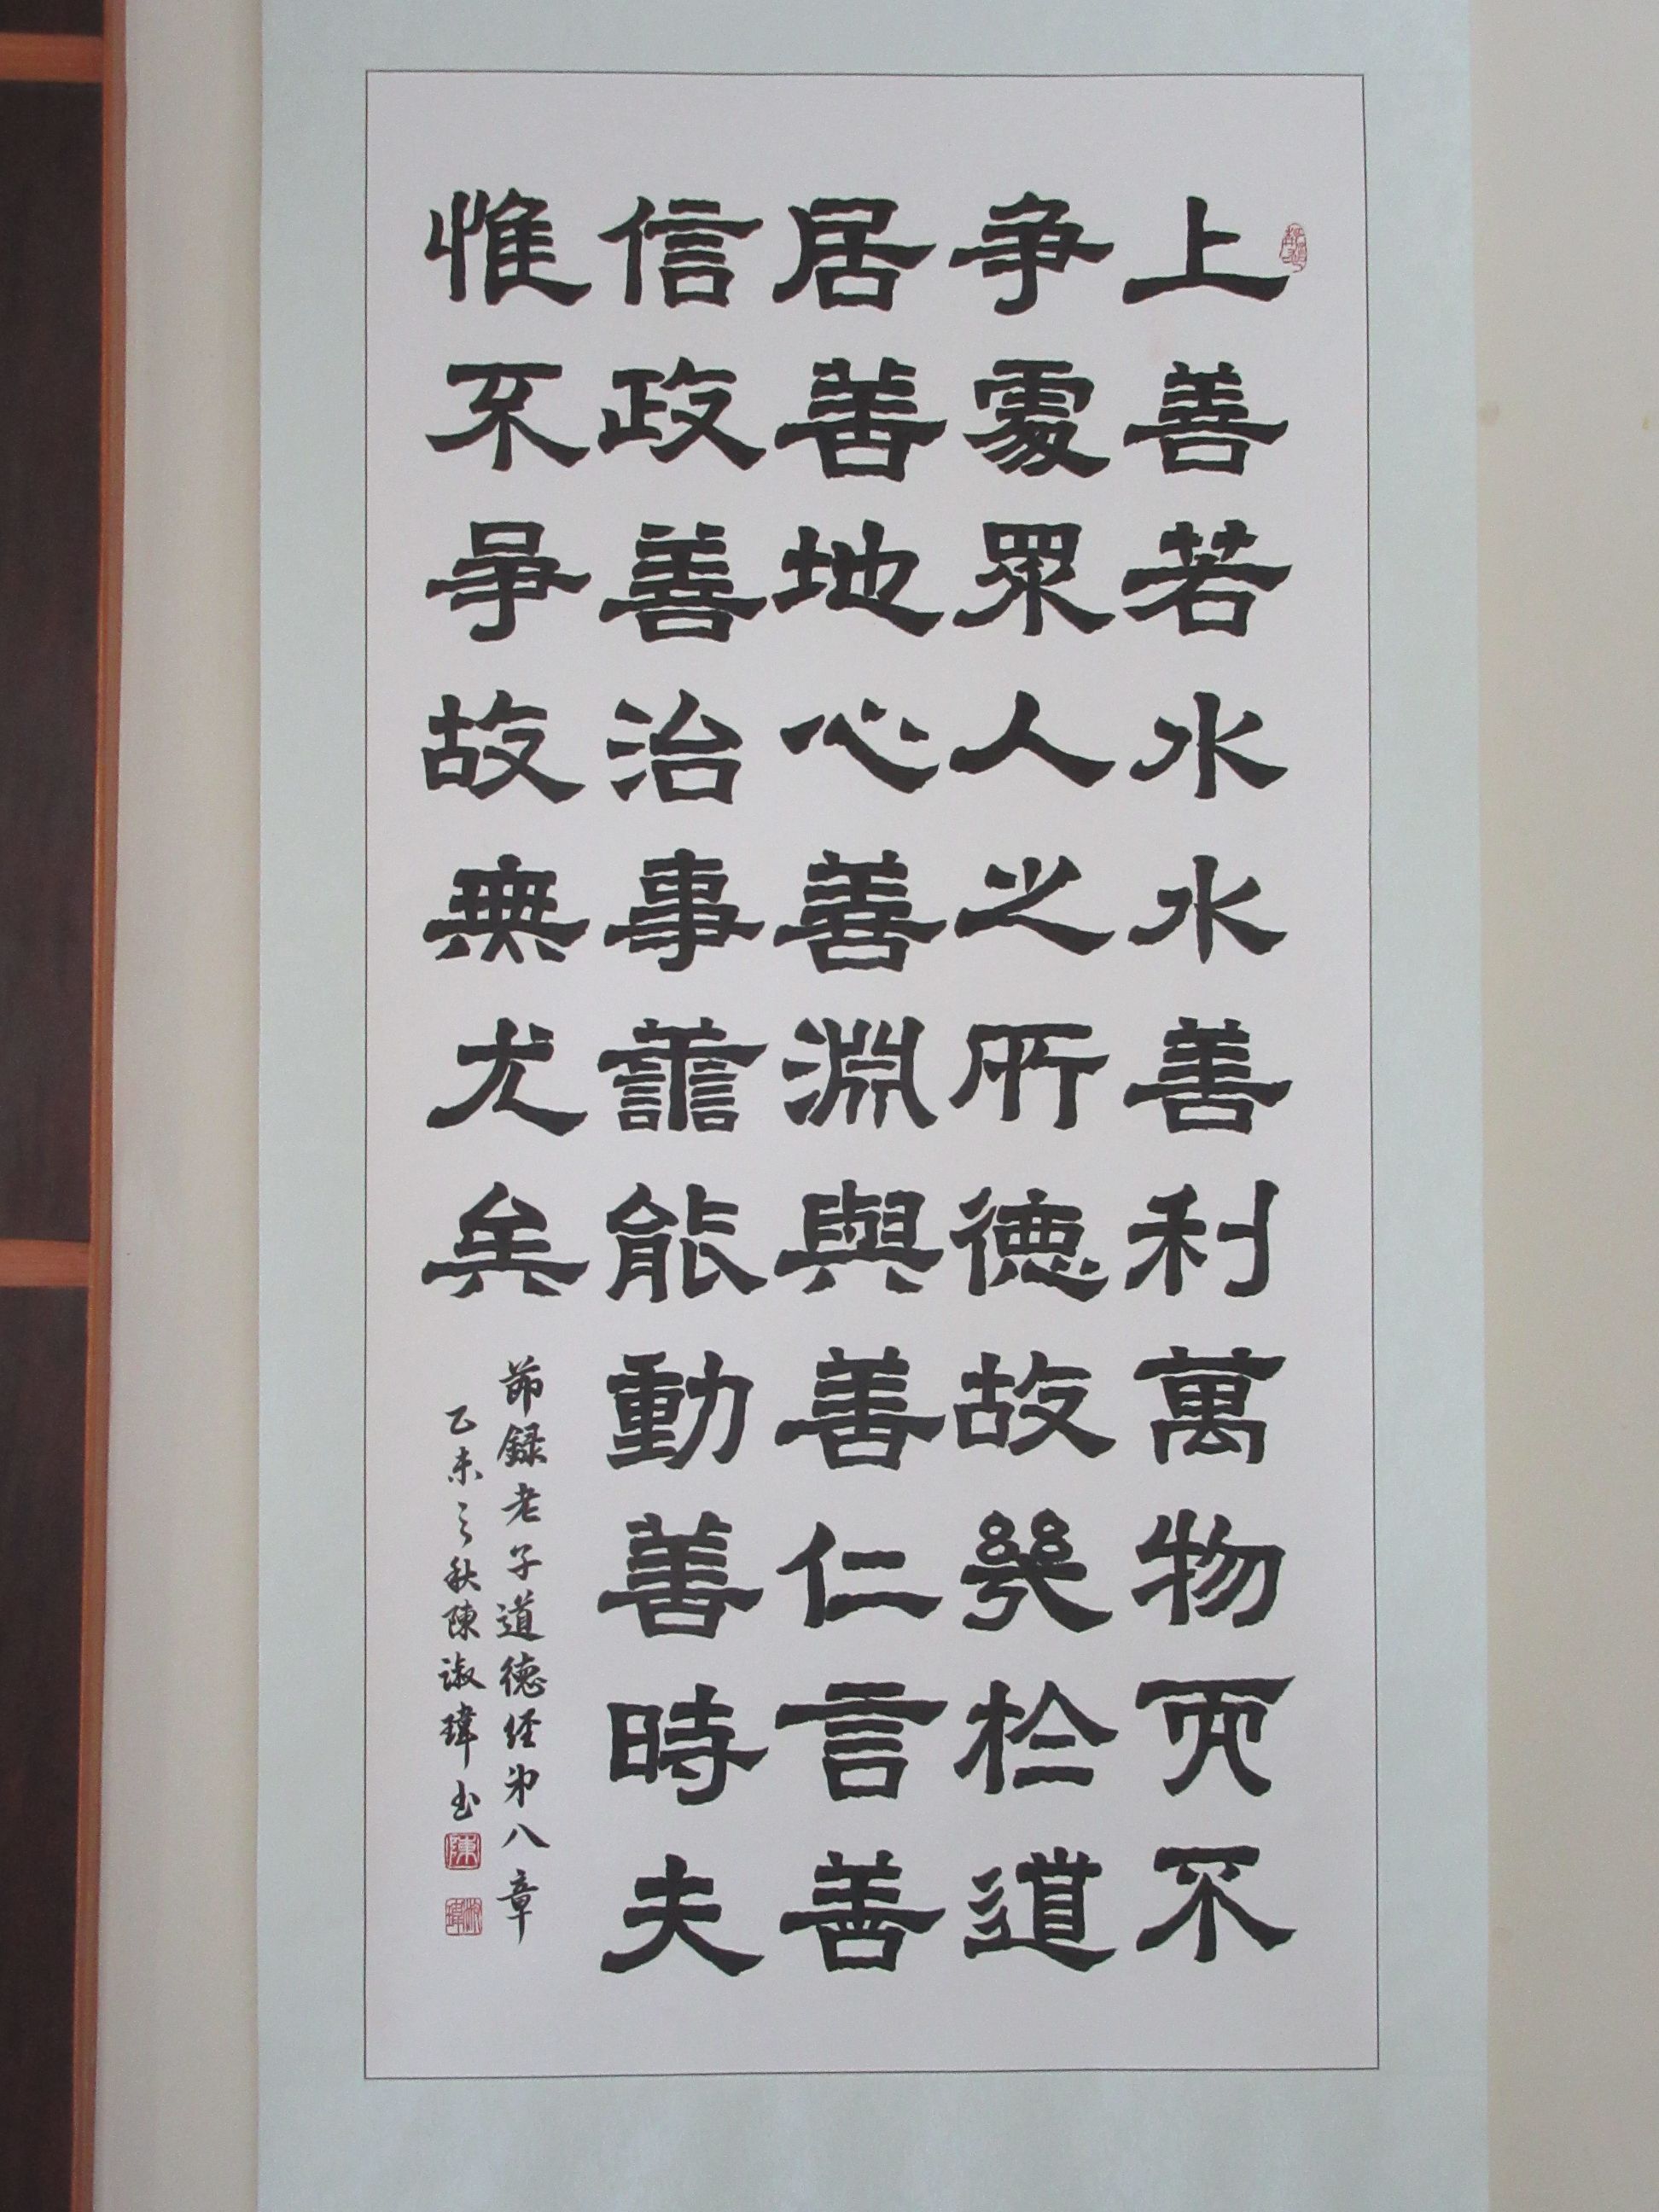 上善若水水善利萬物而不
争處眾人之所德故幾於道
居善地心善淵與善仁言善
信政善治事譱能動善時夫
惟不爭故無尤矣
節録老子道德经弟八章
乙未之秋陳淑瑋书
陳
淑瑋